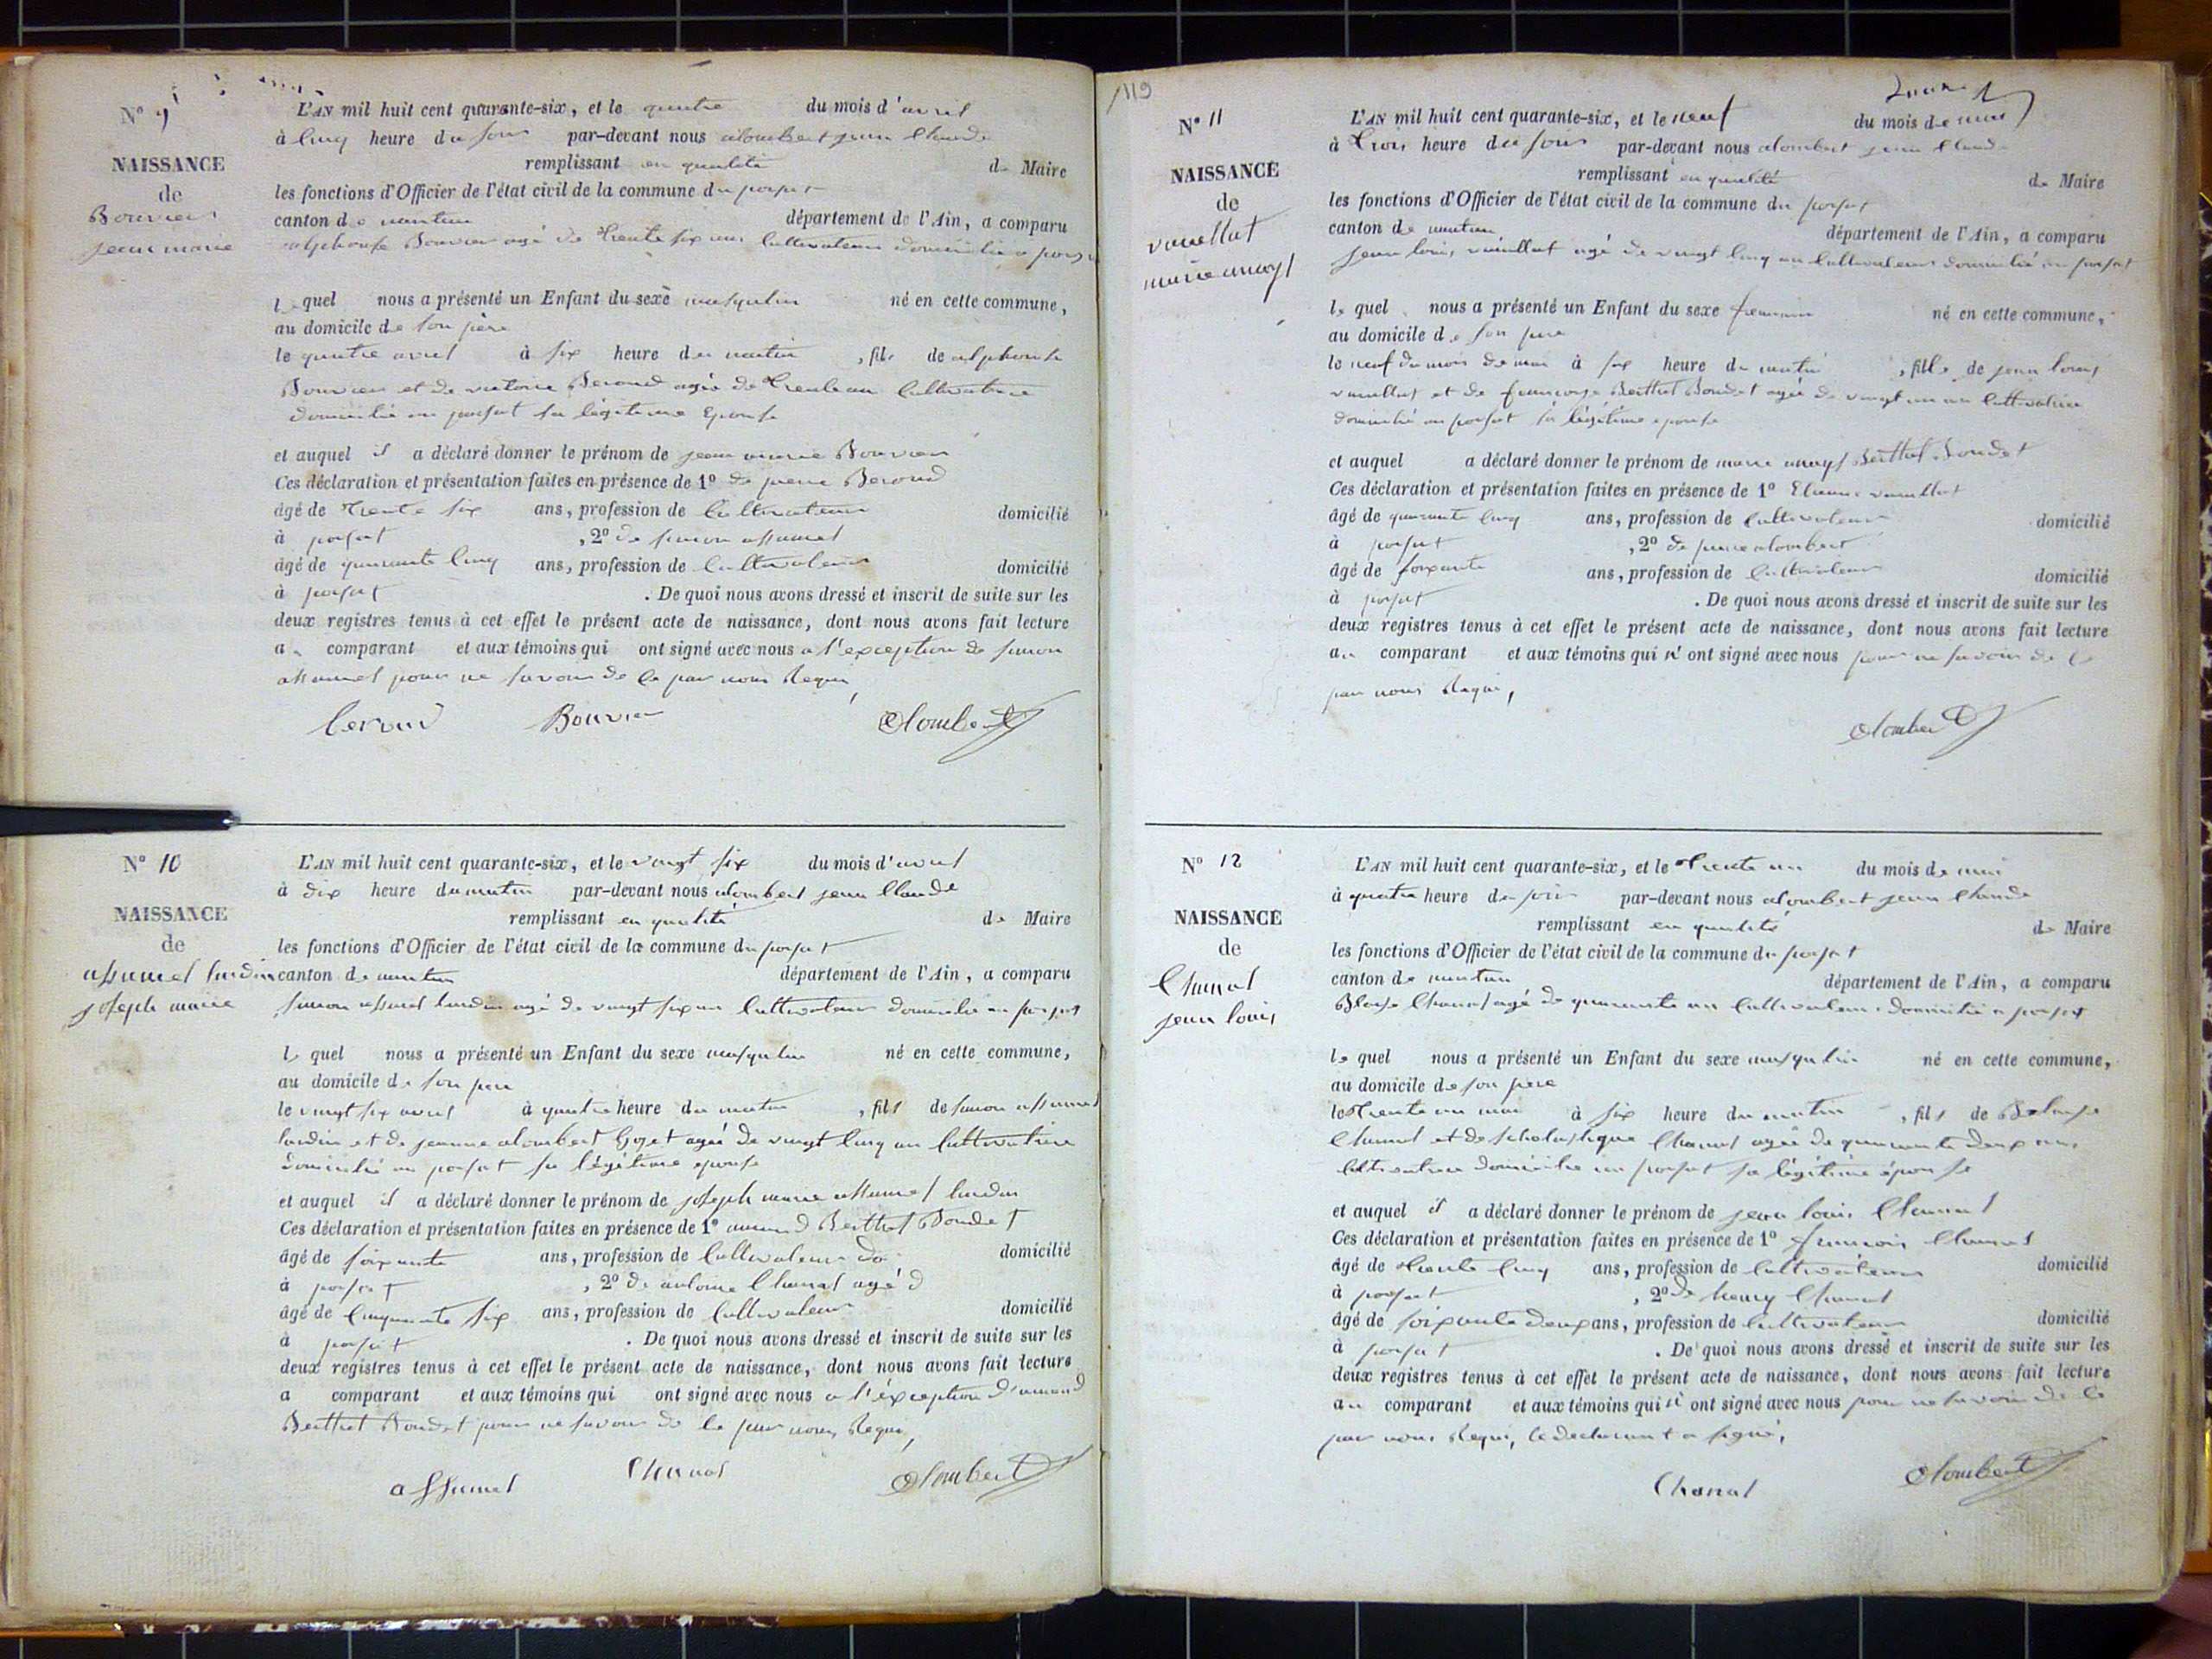 N° 9
NAISSANCE
de
Bouvier
jean marie
L'AN mil huit cent quarante-six, et le quatre du mois d'avril
à cinq heure du soir par-devant nous alombert jean Claude
remplissant en qualité de Maire
les fonctions d'Officier de l'état civil de la commune du poizat
canton de nantua département de l'Ain, a comparu
alphonse Bouvier agé de trente six ans Cultivateur domicilié a poizat
lequel nous a présenté un Enfant du sexe masqulin né en cette commune,
au domicile de son père
le quatre avril à six heure du matin, fils de alphonse
Bouvier et de victoire Beroud agée de trente an Cultivatrice
domicilié au poisat sa légitime Epouse
et auquel il a déclaré donner le prénom de jean marie Bouvier
Ces déclaration et présentation faites en présence de 1° de pierre Beroud
âgé de trente six ans, profession de Cultivateur domicilié
à poisat, 2° de simon assumel
âgé de quarante cinq ans, profession de Cultivateur domicilié
à poisat. De quoi nous avons dressé et inscrit de suite sur les
deux registres tenus à cet effet le présent acte de naissance, dont nous avons fait lecture
au comparant et aux témoins qui ont signé avec nous a l'exception de simon
assumel pour ne savoir de ce par nous Requi,
Beroud Bouvier Alombert
N° 10
NAISSANCE
de
assumel lurdin
joseph marie
L'AN mil huit cent quarante-six, et le vingt six du mois d'avril
à dix heure du matin par-devant nous alombert jean Claude
remplissant en qualité de Maire
les fonctions d'Officier de l'état civil de la commune du poizat
canton de nantua département de l'Ain, a comparu
simon assumel lurdin agé de vingt six an Cultivateur domicilié au poizat
lequel nous a présenté un Enfant du sexe masqulin né en cette commune,
au domicile de son père
le vingt six avril à quatre heure du matin, fils de simon assumel
lurdin et de jeanne alombert Goget agée de vingt cinq an Cultivatrice
domicilié au poisat sa légitime epouse
et auquel il a déclaré donner le prénom de joseph marie assumel lurdin
Ces déclaration et présentation faites en présence de 1° amand Berthet Bondet
âgé de soixante ans, profession de Cultivateur do domicilié
à poisat, 2° de antoine Chanal agé d
âgé de cinquante six ans, profession de Cultivateur domicilié
à poisat. De quoi nous avons dressé et inscrit de suite sur les
deux registres tenus à cet effet le présent acte de naissance, dont nous avons fait lecture
a comparant et aux témoins qui ont signé avec nous a l'éxception d'amand
Berthet Bondet pour ne savoir de ce par nous Requi,
assumel Chanal Alombert
119
N° 11
NAISSANCE
de
vuaillat
marie
L'AN mil huit cent quarante-six, et le neuf du mois de mai
à trois heure du soir par-devant nous alombert jean Claude
remplissant en qualité de Maire
les fonctions d'Officier de l'état civil de la commune du poizat
canton de nantua département de l'Ain, a comparu
jean louis vuaillat agé de vingt cinq an Cultivateur domicilié au poizat
lequel nous a présenté un Enfant du sexe feminin né en cette commune,
au domicile de son père
le neuf du mois de mai à six heure du matin, fille de jean louis
vuaillat et de françoise Berthet Bondet agée de vingt un an Cultivatrice
domicilié au poisat sa légitime epouse
et auquel a déclaré donner le prénom de marie Berthet Bondet
Ces déclaration et présentation faites en présence de 1° Etienne vuaillat
âgé de quarante cinq ans, profession de Cultivateur domicilié
à poisat, 2° de pierre alombert
âgé de soixante ans, profession de Cultivateur domicilié
à poisat. De quoi nous avons dressé et inscrit de suite sur les
deux registres tenus à cet effet le présent acte de naissance, dont nous avons fait lecture
au comparant et aux témoins qui n'ont signé avec nous pour ne savoir de ce
par nous Requi,
Alombert
N° 12
NAISSANCE
de
Chanal
jean louis
L'AN mil huit cent quarante-six, et le trente un du mois de mai
à quatre heure du soir par-devant nous alombert jean Claude
remplissant en qualité de Maire
les fonctions d'Officier de l'état civil de la commune du poizat
canton de nantua département de l'Ain, a comparu
Blaise Chanal agé de quarante an Cultivateur domicilié a poizat
lequel nous a présenté un Enfant du sexe masqulin né en cette commune,
au domicile de son père
le trente un mai à six heure du matin, fils de Blaise
Chanal et de Scholastique Chanal agée de quarante deux ans
Cultivatrice domicilié au poisat sa légitime épouse
et auquel il a déclaré donner le prénom de jean louis Chanal
Ces déclaration et présentation faites en présence de 1° francois Chanal
âgé de trente cinq ans, profession de Cultivateur domicilié
à poisat, 2° de henry Chanal
âgé de soixante deux ans, profession de Cultivateur domicilié
à poisat. De quoi nous avons dressé et inscrit de suite sur les
deux registres tenus à cet effet le présent acte de naissance, dont nous avons fait lecture
au comparant et aux témoins qui n'ont signé avec nous pour ne savoir de ce
par nous Requi, le declarant a signé,
Chanal Alombert